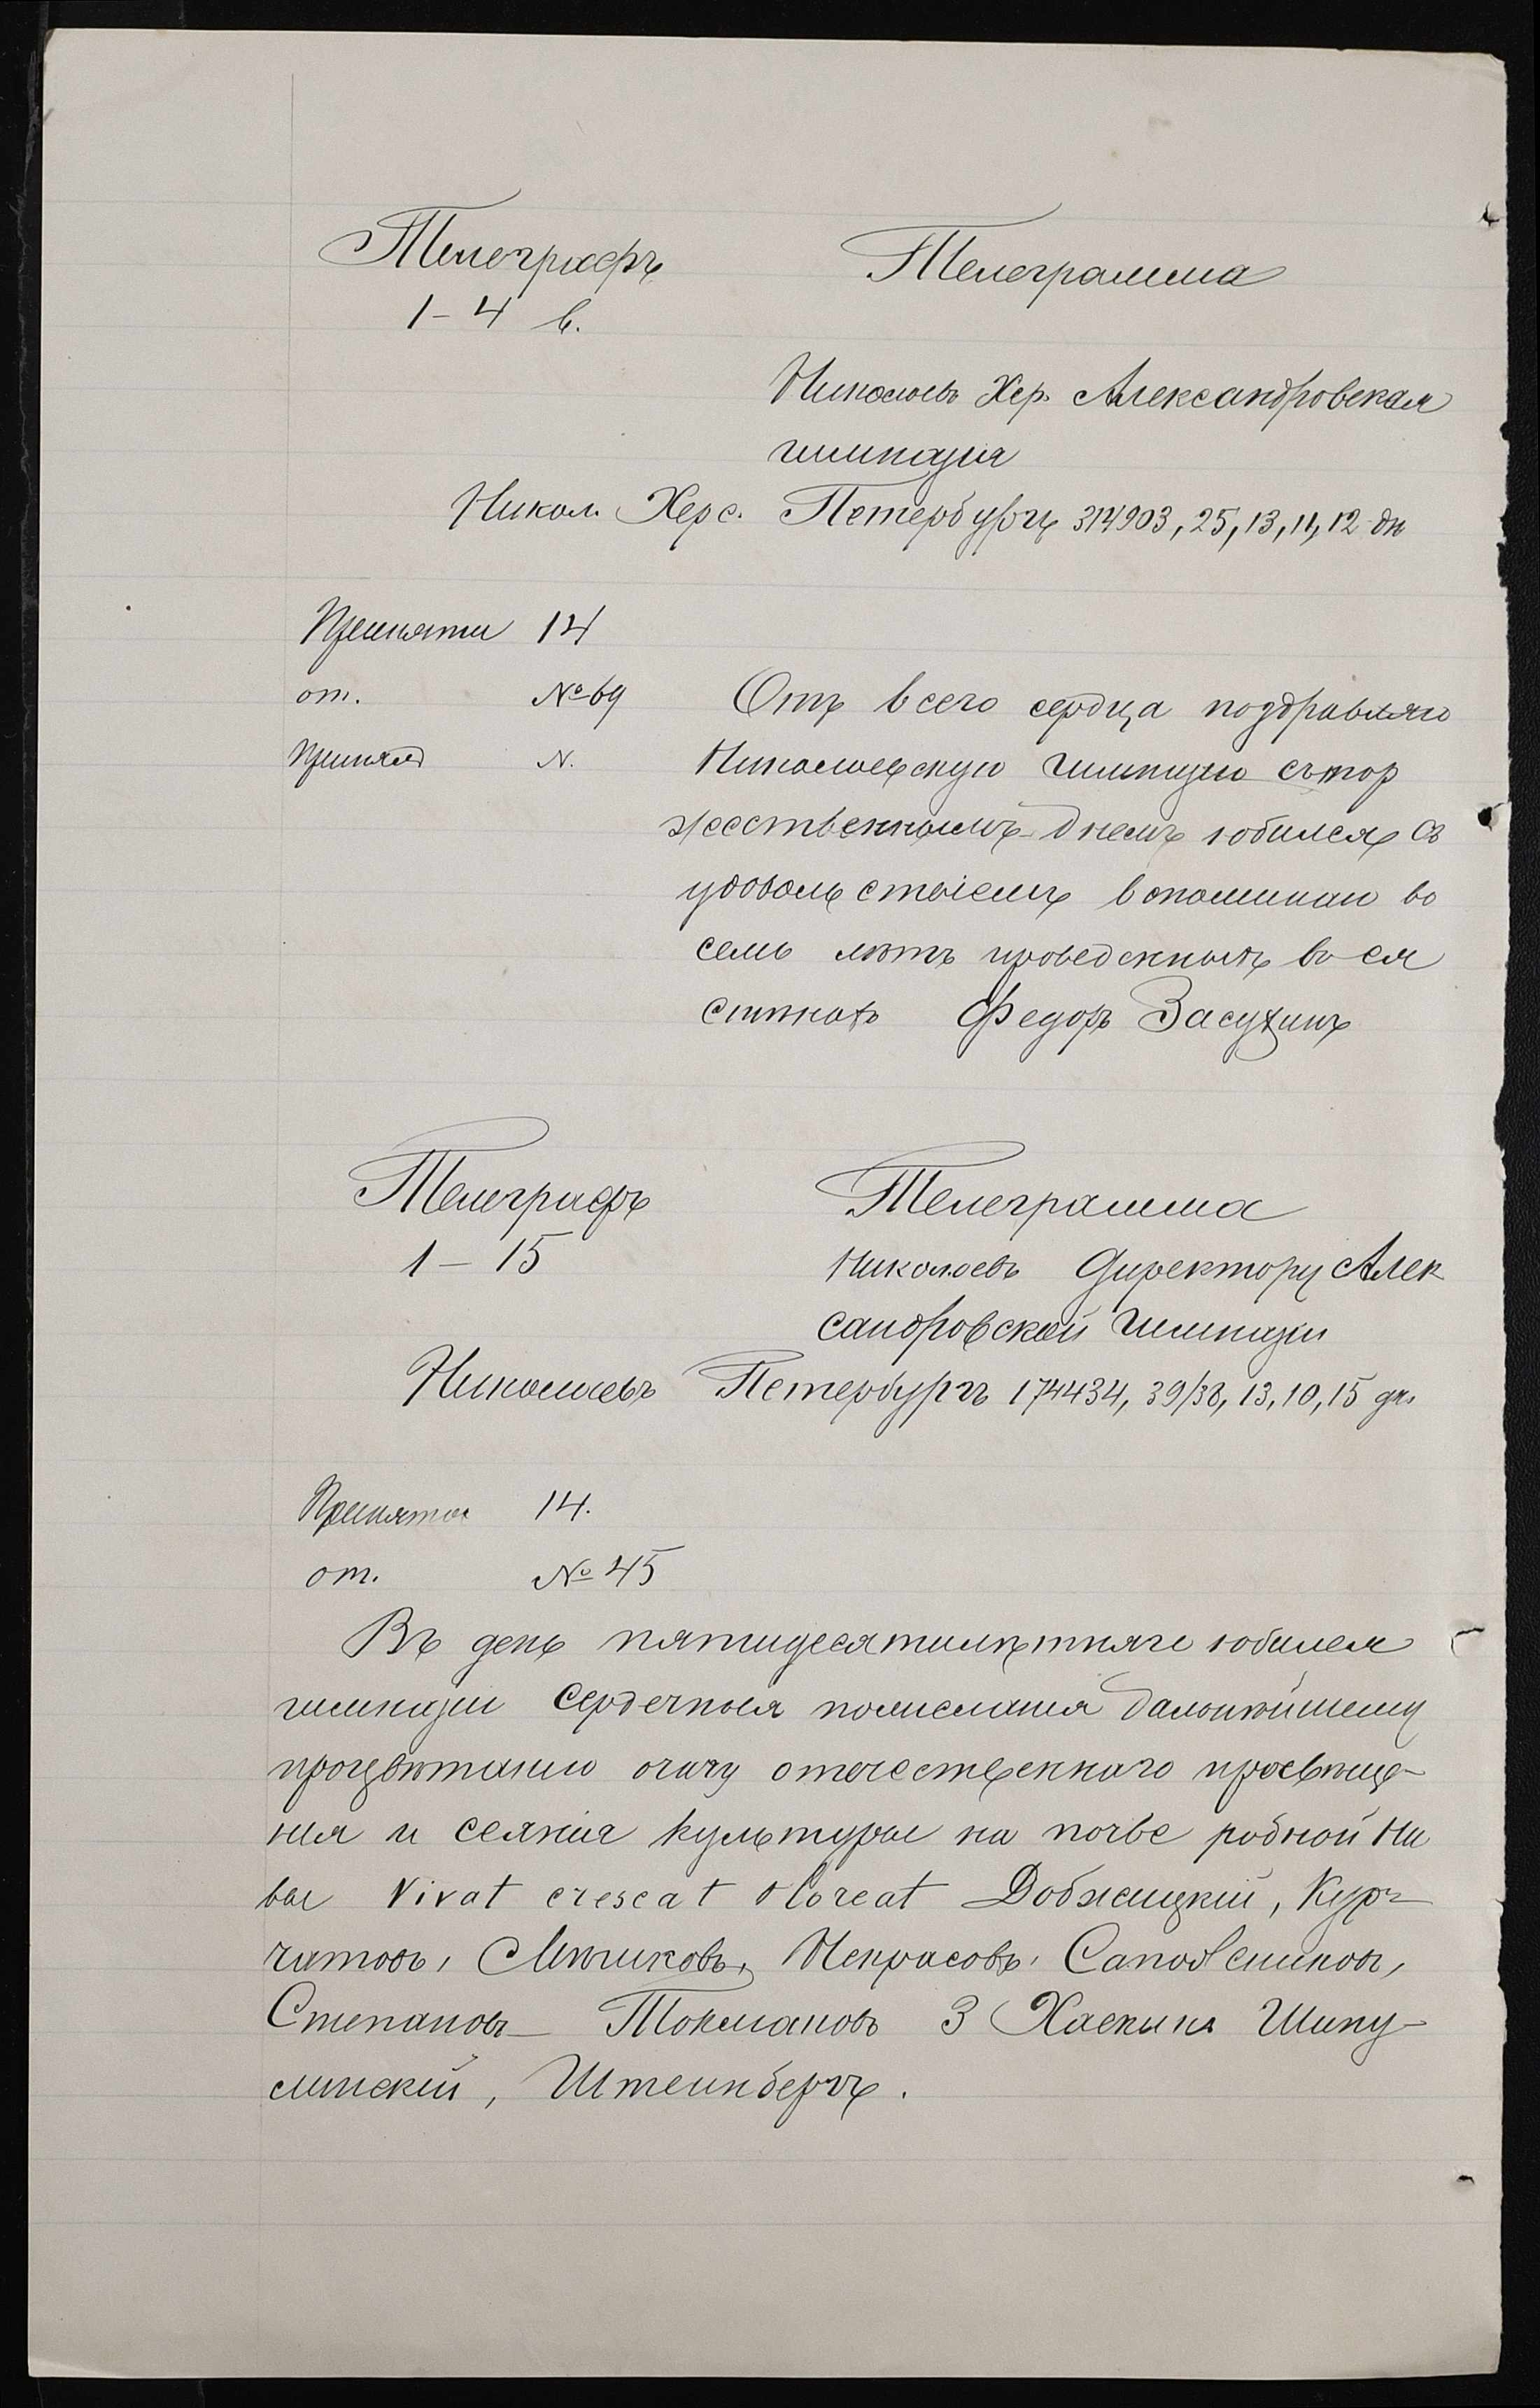 Телеграфъ
Телеграмма
1-4 в.
Николаевъ Хер. Александровская
гимназія
Никол. Херс. Петербургъ 314903, 25, 13, 11, 12 дн
Приняти 14
от. № 69
Отъ всего сердца поздравляю
Принялъ N.
Николаевскую гимназію съ тор
жественнымъ днемъ юбилея съ
удовольствіемъ вспоминаю во
семь лѣтъ проведенныхъ въ ея
стѣнахъ Федоръ Засухинъ
Телеграфъ
Телеграмма
1-15
Николаевъ Директору Алек
сандровской гимназіи
Николаевъ Петербургъ 174434, 39/38, 13, 10, 15 дн.
Принята 14.
от. № 45
Въ день пятидесятилѣтняго юбилея
гимназіи сердечныя пожеланія дальнѣйшему
процвѣтанію очагу отечественнаго просвѣще-
нія и сеянія культуры на почве родной ни
вы Vivat crescat floreat Добжицкій, Кур-
чатовъ, Некрасовъ, Сапожниковъ,
Степановъ Токмаковъ 3 Хаскинъ Шипу-
линскій, Штеинбергъ.